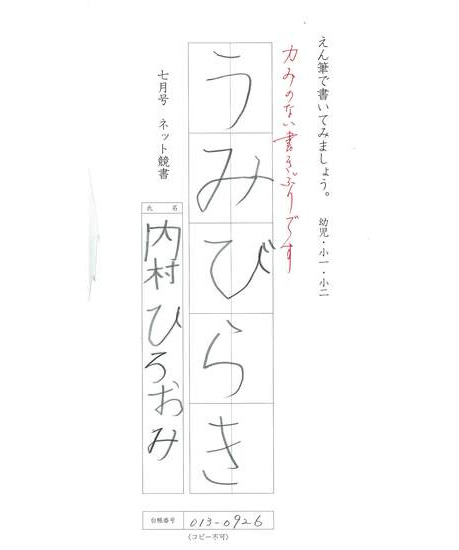 えん筆で書いてみましょう。 幼児・小一・小二
力みのない書きぶりです
うみびらき
七月号 ネット競書
氏 名
内村ひろおみ
台帳番号 013-0926
(コピー不可)